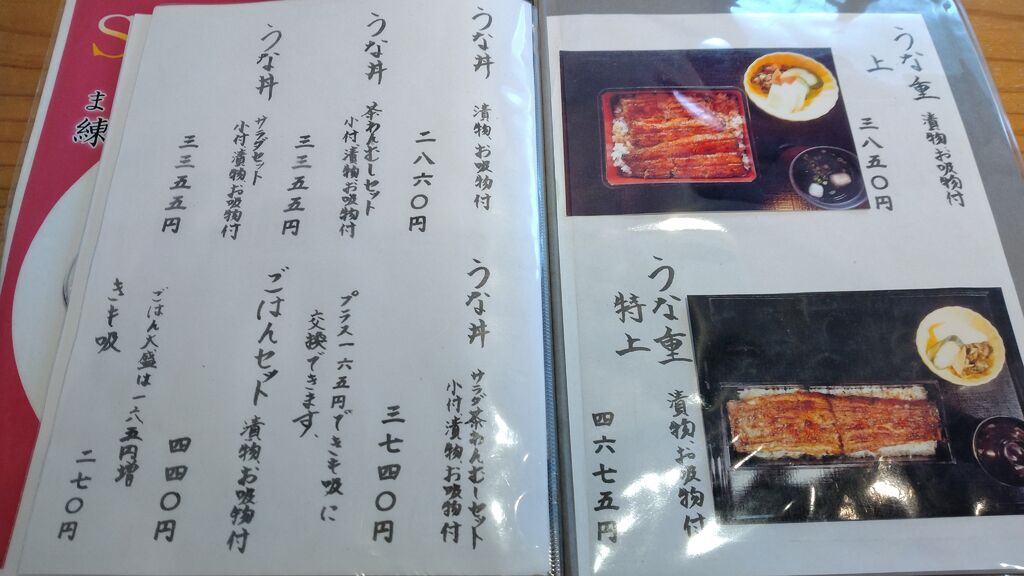 うな重
上
漬物お吸物付
三八五〇円
うな重
特上
漬物お吸物付
四六七五円
うな丼
漬物お吸物付
二八六〇円
うな丼
茶わんむしセット
小付漬物お吸物付
三三五五円
うな丼
サラダセット
小付漬物お吸物付
三三五五円
うな丼
サラダ茶わんむしセット
小付漬物お吸物付
三七四〇円
プラス一六五円できも吸に
交換できます、
ごはんセット
漬物お吸物付
四四〇円
ごはん大盛は一六五円増
きも吸
二七〇円
S
ま
練